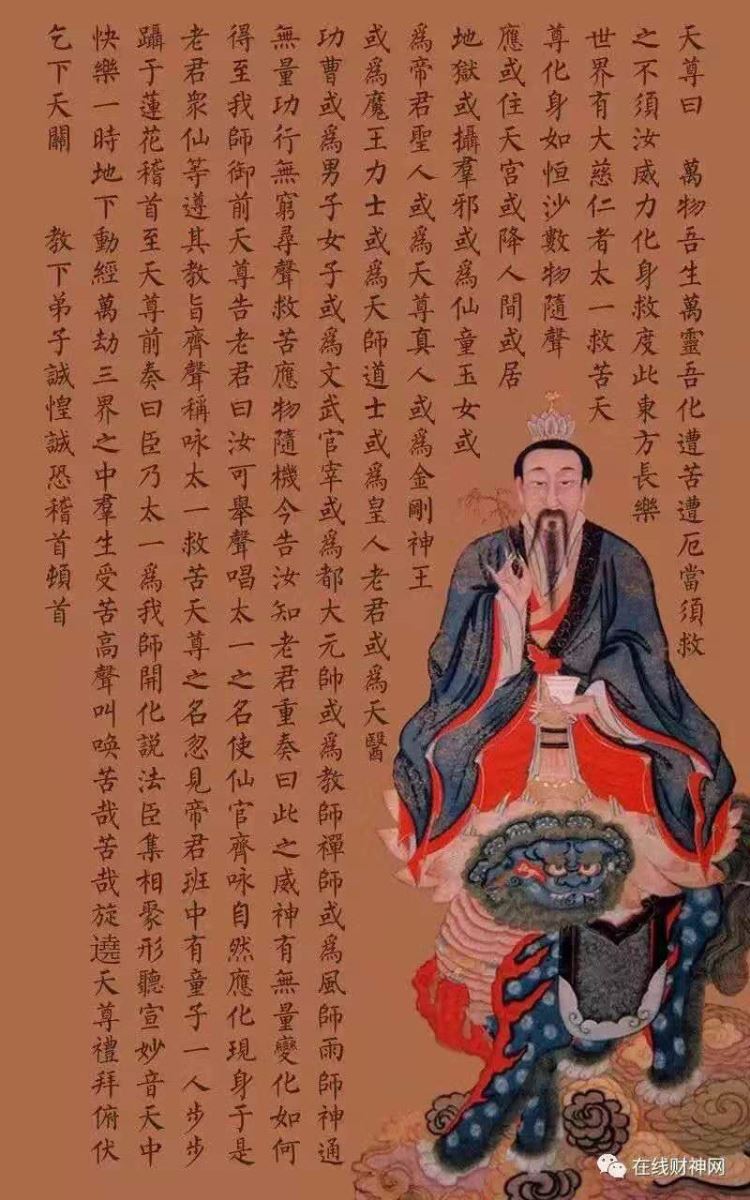 天尊曰　萬物吾生萬靈吾化遭苦遭厄當須救
之不須汝威力化身救度此東方長樂
世界有大慈仁者太一救苦天
尊化身如恒沙數物隨聲
應或住天宮或降人間或居
地獄或攝羣邪或爲仙童玉女或
爲帝君聖人或爲天尊真人或爲金剛神王
或爲魔王力士或爲天師道士或爲皇人老君或爲天醫
功曹或爲男子女子或爲文武官宰或爲都大元帥或爲教師禪師或爲風師雨師神通
無量功行無窮尋聲救苦應物隨機今告汝知老君重奏曰此之威神有無量變化如何
得至我師御前天尊告老君曰汝可舉聲唱太一之名使仙官齊咏自然應化現身于是
老君衆仙等遵其教旨齊聲稱咏太一救苦天尊之名忽見帝君班中有童子一人步步
躡于蓮花稽首至天尊前奏曰臣乃太一爲我師開化説法臣集相聚形聽宣妙音天中
快樂一時地下動經萬劫三界之中羣生受苦高聲叫唤苦哉苦哉旋遶天尊禮拜俯伏
乞下天關　　教下弟子誠惶誠恐稽首頓首
在线财神网